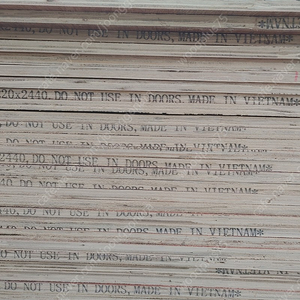 2440,DO NOT USE IN DOORS,MADE IN VIETNAM*
20x2440,DO NOT USE IN DOORS,MADE IN VIETNAM*
DO NOT USE IN DOORS,MADE IN VIETNAM
DO NOT USE IN DOORS,MADE IN VIETNAM
2440,DO NOT USE IN DOORS,MADE IN VIETNAM*
440,DO NOT USE IN DOORS,MADE IN VIETNAM*
DO NOT USE IN DOORS,MADE IN VIETNAM*
440,DO NOT USE IN DOORS,MADE IN VIETNAM*
40,DO NOT USE IN DOORS,MADE IN VIETNAM*
DO NOT USE IN DOORS,MADE IN VIETNAM*
DO NOT USE IN DOORS,MADE IN VIETNAM*